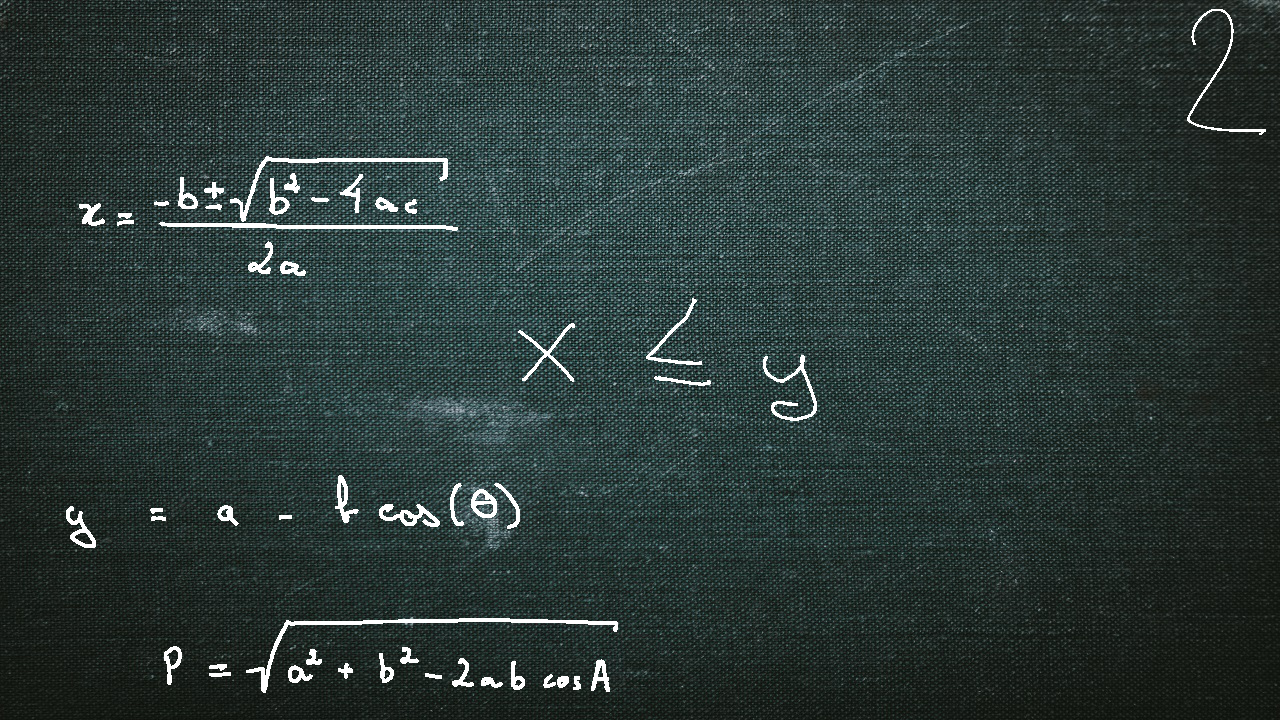 2
x = \frac{-b ± \sqrt{b^2 - 4ac}}{2a}
x ≤ y
y = a - b cos(θ)
P = \sqrt{a^2 + b^2 - 2ab cos A}